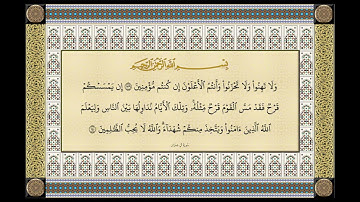 بسم الله الرحمن الرحيم
وَلَا تَهِنُوا۟ وَلَا تَحْزَنُوا۟ وَأَنتُمُ ٱلْأَعْلَوْنَ إِن كُنتُم مُّؤْمِنِينَ ۝ إِن يَمْسَسْكُمْ
قَرْحٌ فَقَدْ مَسَّ ٱلْقَوْمَ قَرْحٌ مِّثْلُهُۥ ۚ وَتِلْكَ ٱلْأَيَّامُ نُدَاوِلُهَا بَيْنَ ٱلنَّاسِ وَلِيَعْلَمَ
ٱللَّهُ ٱلَّذِينَ ءَامَنُوا۟ وَيَتَّخِذَ مِنكُمْ شُهَدَآءَ ۗ وَٱللَّهُ لَا يُحِبُّ ٱلظَّـٰلِمِينَ ۝
سورة آل عمران